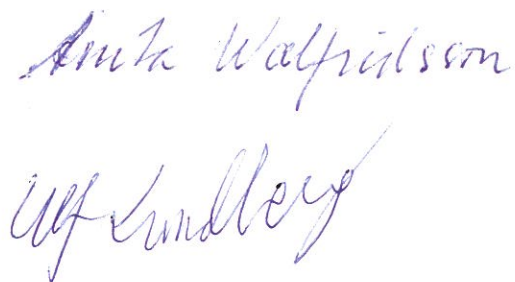 Anita Walfridsson
Ulf Lundberg